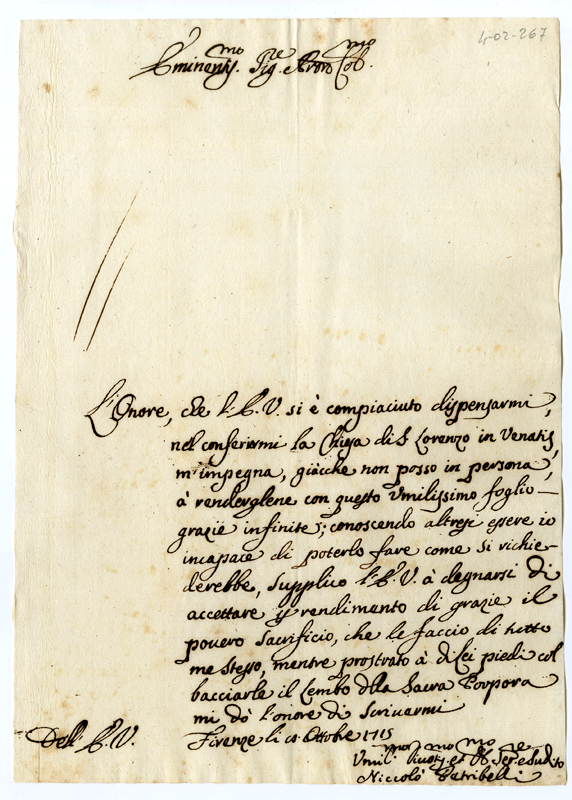 4-02-267
Eminentis.mo Sig.re Pron Col.mo
L'Onore, che l'E.V. si è compiaciuto dispensarmi,
nel conferirmi la Chiesa di S Lorenzo in Venatis,
m'impegna, giàcche non posso in persona,
à renderglene con questo Umilissimo foglio
grazie infinite; conoscendo altresi essere io
incapace di poterlo fare come si richie-
derebbe, supplico l'E.V. à degnarsi di
accettare in rendimento di grazie il
povero sacrificio, che le faccio di tutto
me stesso, mentre prostrato à di Lei piedi col
bacciarle il Lembo della Sacra Porpora
mi dò l'onore di scrivermi
Dell' E.V. Firenze li Ottobre 1715
Umil.mo et Ob.mo Ser.re e Sudito
Niccolò